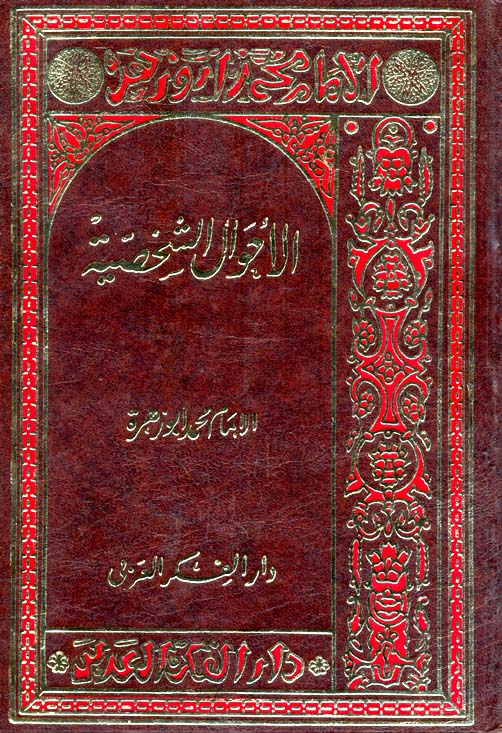 الإمام محمد أبو زهرة
الأحوال الشخصية
الإمام محمد أبو زهرة
دار الفكر العربي
دار الفكر العربي